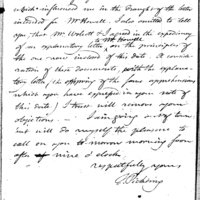 which influenced me in the draught of the letter
intended for Mr Howell. I also omitted to tell
you that Mr Wolcott & I agreed in the expediency
of an explanatory letter to Mr Howell, on the principles of
the one now instead of this date. A
of this documents, with the
tion letter, the of the same apprehensions
which you have expressed in your note of
this date) I trust will remove your
objections. — I am going out of town
but will do myself the pleasure to
call on you to morrow morning soon
after nine o'clock
respectfully yours
T. Pickering